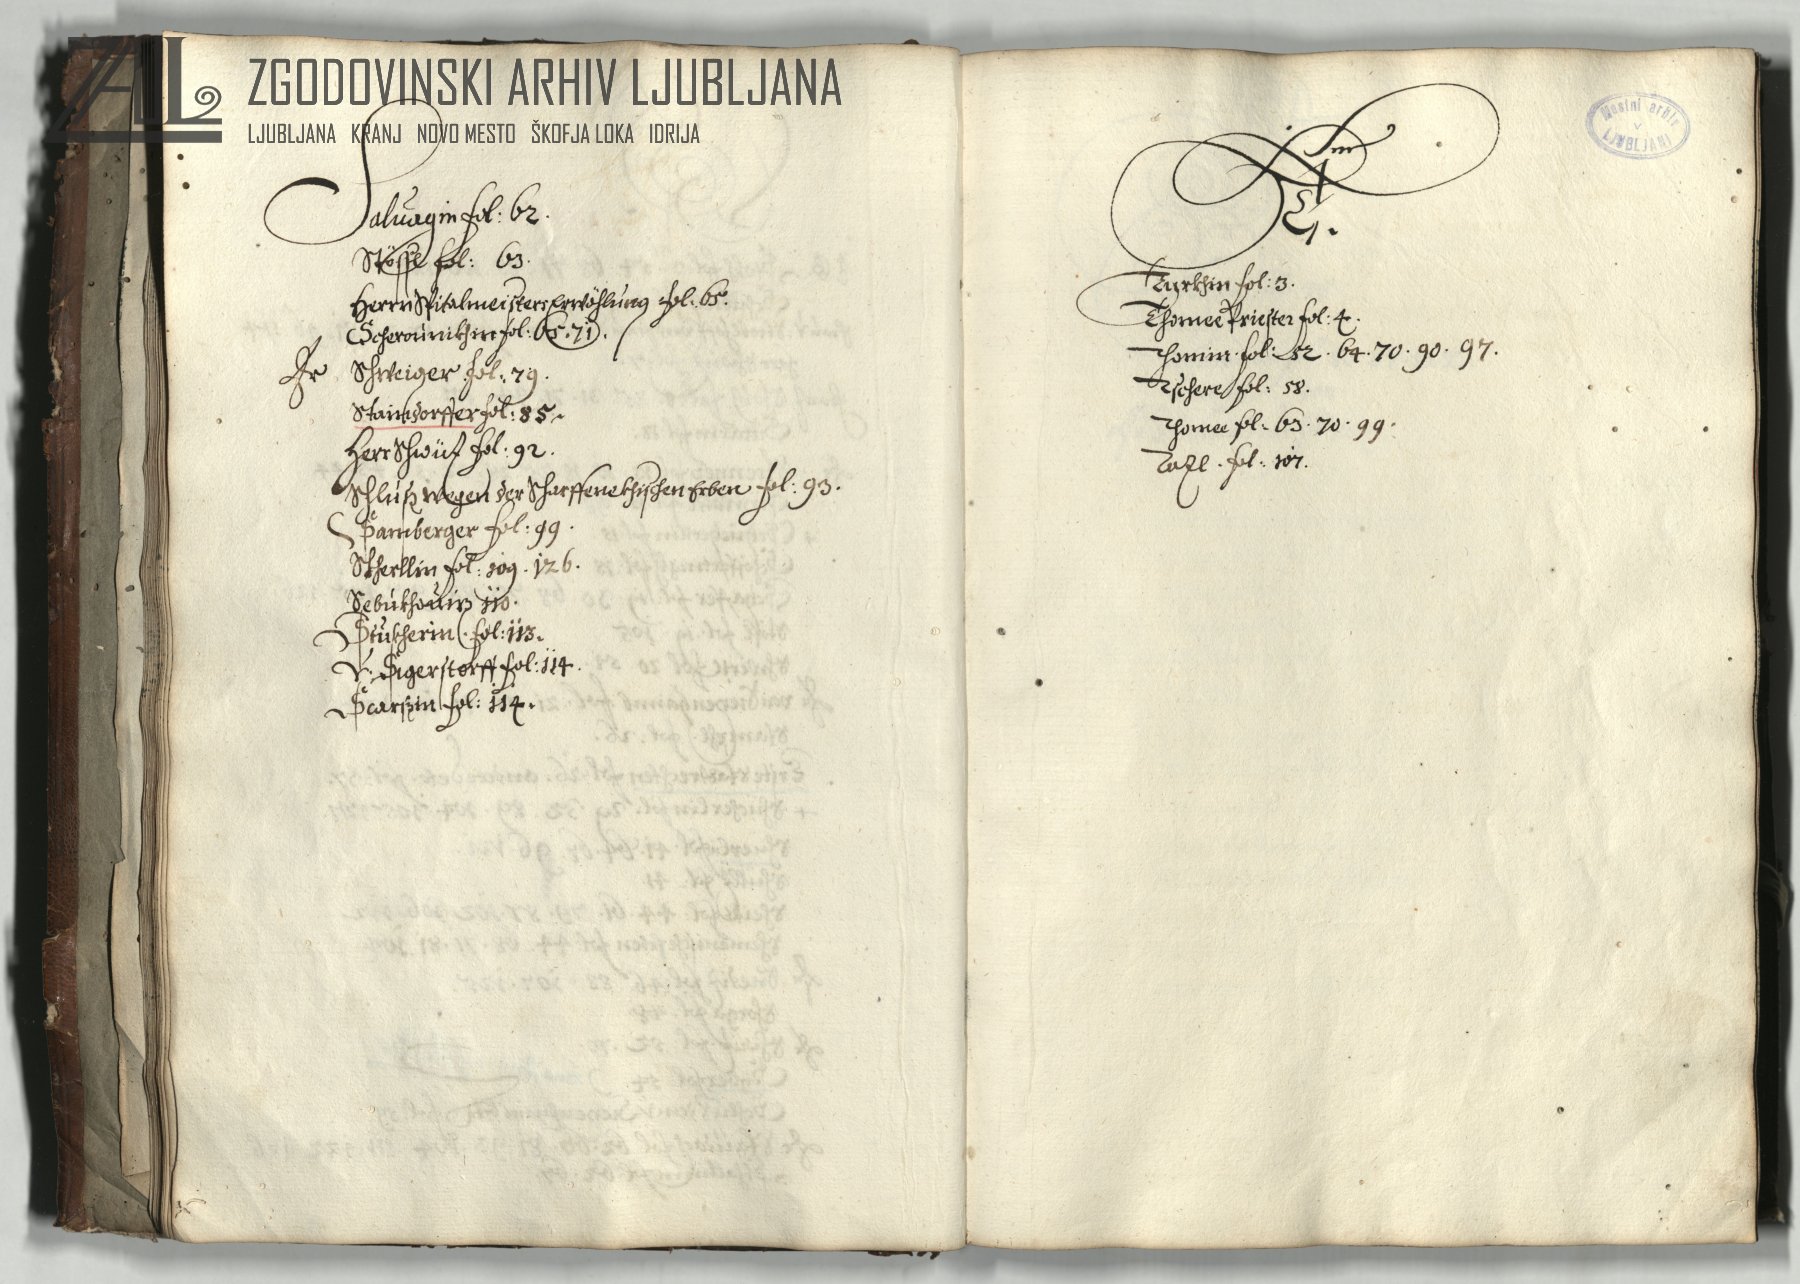 ZGODOVINSKI ARHIV LJUBLJANA
LJUBLJANA KRANJ NOVO MESTO ŠKOFJA LOKA IDRIJA
Saluagin fol: 62.
Stöffl fol: 63.
Herrn Spitalmeisters Erwöhlung fol: 65.
fol: 65. 71.
Schweiger fol: 79.
Staindorffer fol: 85.
Herr fol: 92.
Schluß wegen der Scharffenekhischen Erben fol: 93.
Samberger fol: 99.
fol: 109. 126.
110.
Stukherin fol: 113.
V. Sigerstorff fol: 114.
Scarßin fol: 114.
Mestni arhiv
v
LJUBLJANI
T.
Türkhin fol: 3.
Thomee Priester fol: 4.
Thomin fol: 52. 64. 70. 90. 97.
Tschere fol: 58.
Thomee fol: 63. 70. 99.
fol: 107.